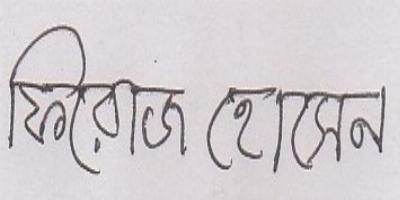 ফিরোজ হোসেন